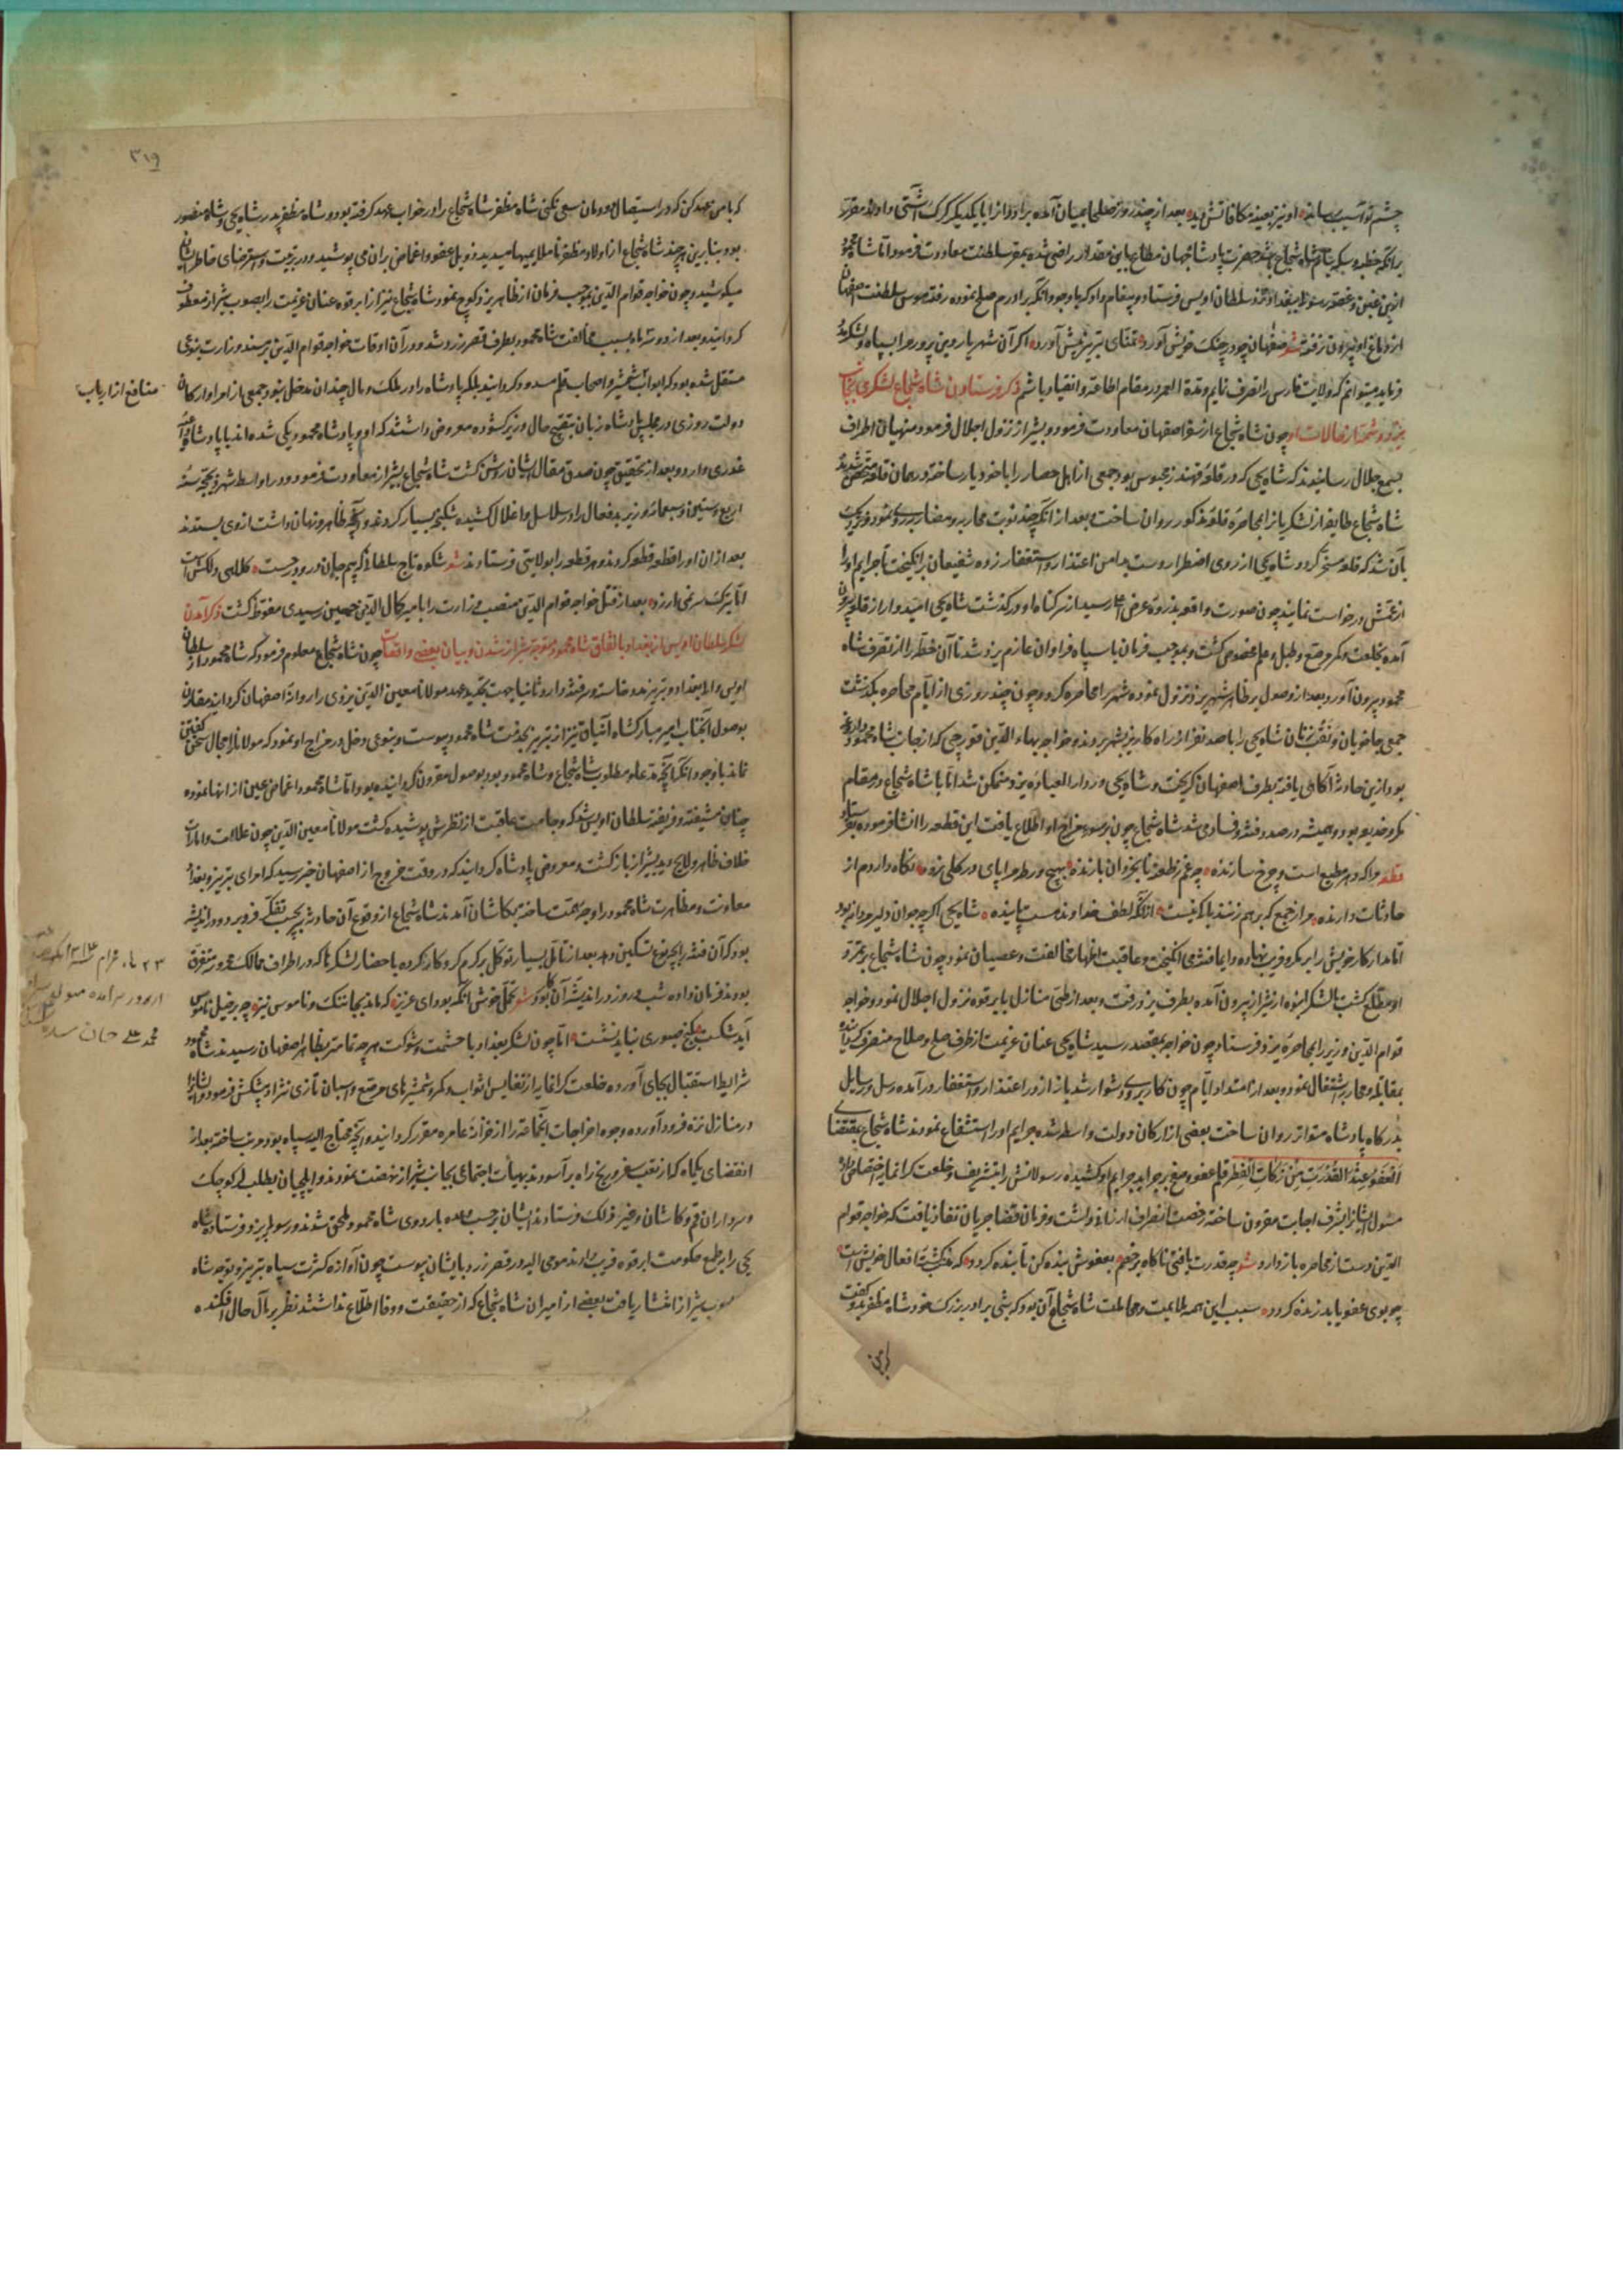 چشم تو آسیب رساند او نیز بعینه مکافاتش دید بعد از چند روز صلحا بمیان آمده برادر را با یکدیگر کرک آشتی دادند مقرر
برآنکه خطبه و سکه بنام شاه شجاع باشد حضرت پادشاه جهان مطاع باین مقدار راضی شده بمقر سلطنت معاودت فرمود اما شاه محمود
ازین غبن و غصه رسولی ببغداد نزد سلطان اویس فرستاد و پیغام داد که باوجود آنکه برادرم صلح نموده رفته هوس سلطنت اصفهان
از دماغ او بیرون نرفته شعر صفهان چو در چنک خویش آورد تمنای تبریز پیش آورد اگر آن شهریار دین پرور مرا بسپاه و لشکر مدد
فرماید میتوانم که ولایت فارس را تصرف نمایم و مدة العمر در مقام اطاعة و انقیاد باشم ذکر فرستادن شاه شجاع لشکری بجانب
یزد و شمه از حالات او چون شاه شجاع از سفر اصفهان معاودت فرمود و بشیراز نزول اجلال فرمود منهیان اطراف
بسمع جلال رسانیدند که شاه یحیی که در قلعه قهندز محبوس بود جمعی از اهل حصار را با خود یار ساخته در همان قلعه متحصن شد
شاه شجاع طایفه از لشکریانرا بمحاصره قلعه مذکور روان ساخت بعد از آنکه چند نوبت محاربه و مضاربه روی نمود نزدیک
بآن شد که قلعه مسخر گردد شاه یحیی از روی اضطرار دست بدامن اعتذار و استغفار زده شفیعان برانکیخت تا جرایم او را
از عمش درخواست نمایند چون صورت واقعه بذروه عرض اعلا رسید از سر کناه او درگذشت شاه یحیی امیدوار از قلعه بیرون
آمده بخلعت و کمر مرصع و طبل و علم مخصوص کشت و بموجب فرمان با سپاه فراوان عازم یزد شد تا آن خطه را از تصرف شاه
محمود بیرون آورد و بعد از وصول بر ظاهر شهر یزد نزول نموده شهر را محاصره کرد و چون چند روزی از ایام محاصره بگذشت
جمعی جاخویان و نقب زنان شاه یحیی را با صد نفر از راه کاریز بشهر بردند و خواجه بهاء الدین قورچی که از جانب شاه محمود داروغه
بود ازین حادثه آگاهی یافته بطرف اصفهان گریخت و شاه یحیی در دار العباده یزد متمکن شد اما با شاه شجاع در مقام
مکر و خدیعه بود و همیشه درصدد فتنه و فساد می شد شاه شجاع چون بر سوء مزاج او اطلاع یافت این قطعه را انشا فرموده بفرستاد
قطعه مرا که دهر مطیع است و چرخ سازنده چه غم ز طعنه نابخردان بازنده بهیچ ورطه مرا پای در کلی نرود نگاه دارم از
حادثات دارنده مرا ز جمع که برهم زنند باک نیست از آنکه لطف خداوند هست پاینده شاه یحیی اگرچه جوان دلیر مردانه بود
اما مدار کار خویش را بر مکر و فریب نهاده و دایما فتنه می انکیخت و عاقبت اظهار مخالفت و عصیان نمود چون شاه شجاع بر تمرد
او مطلع کشت با لشکر انبوه از شیراز بیرون آمده بطرف یزد رفت و بعد از طی منازل بابرقوه نزول اجلال نمود و خواجه
قوام الدین وزیر را بمحاصره یزد فرستاد چون خواجه بمقصد رسید شاه یحیی عنان عزیمت از طرف صلح و صلاح منصرف گردانیده
بمقابله و محاربه اشتغال نمود و بعد از امتداد ایام چون کار بروی دشوار شد باز از در اعتذار و استغفار درآمده رسل و رسایل
بدرکاه پادشاه متواتر روان ساخت بعضی از ارکان دولت واسطه شده جرایم او را استشفاع نمودند شاه شجاع بمقتضای
العفو عند القدرت من زکات الظفر قلم عفو و صفح بر جراید جرایم او کشیده رسولانش را بتشریف و خلعت کرانمایه اختصاص داد
مسئول ایشانرا بشرف اجابت مقرون ساخته رخصت انصراف ارزانی داشت و فرمان قضا جریان نفاذ یافت که خواجه قوام
الدین دست از محاصره بازدارد شعر چه قدرت یافتی ناکاه بر خصم بعفوش بنده کن تا بنده کردد که کشته افعال خویش است
چو بوی عفو یابد زنده کردد سبب این همه ملایمت و مجاملت شاه شجاع آن بود که شبی برادر بزرک خود شاه مظفر بدو کفت
با من
۳۱۹
که با من عهد کن که در استیصال دودمان سعی نکنی شاه مظفر شاه شجاع را در خواب عهد کرفته بود و شاه مظفر پدر شاه یحیی و شاه منصور
بود و بنابرین هر چند شاه شجاع از اولاد مظفر ناملایمیها میدید ذیل عفو و اغماض بران می پوشید و در تربیت و استرضای خاطر ایشان
میکوشید و چون خواجه قوام الدین بموجب فرمان از ظاهر یزد کوچ نمود شاه شجاع نیز از ابرقوه عنان عزیمت را بصوب شیراز معطوف
کردانید و بعد از دو سه ماه بسبب مخالفت شاه محمود بطرف قصر زرد شد و در آن اوقات خواجه قوام الدین بر مسند وزارت بنوعی
مستقل شده بود که ابواب شمشیر و اصحاب قلم مسدود کردانید بلکه پادشاه را در ملک و مال چندان مدخل نبود جمعی از امرا و ارکان
منافع از ارباب
دولت روزی در مجلس پادشاه زبان بتقبیح حال وزیر کشوده معروض داشتند که او و پادشاه محمود یکی شده اند با پادشاه
غدری دارد و بعد از تحقیق چون صدق مقال ایشان روشن کشت شاه شجاع بشیراز معاودت فرمود و در اواسط شهر ذیحجه سنه
اربع و ستین و سبعمائه وزیر بدفعال را در سلاسل و اغلال کشیده شکنجه بسیار کردند و آنچه ظاهر و نهان داشت از وی بستدند
بعد از ان او را قطعه قطعه کردند و هر قطعه را بولایتی فرستادند شعر شکوه تاج سلطانی که بیم جان درو درجست کلاهی دلکش است
اما بترک سر نمی ارزد بعد از قتل خواجه قوام الدین منصب وزارت را بامیر کمال الدین حسین رشیدی مفوض کشت ذکر آمدن
لشکر سلطان اویس از بغداد باتفاق شاه محمود متوجه شیراز شدن و بیان بعضی واقعات چون شاه شجاع معلوم فرمود که شاه محمود از سلطان
اویس والی بغداد و تبریز مدد خواسته در فتنه دارد ثانیا جهت تجدید عهد مولانا معین الدین یزدی را روانه اصفهان کردانید مقارن
بوصول آنجناب امیر مبارکشاه ایناق نیز از تبریز بخدمت شاه محمود پیوست و بنوعی دخل در مزاج او نمود که مولانا را مجال سخن کفتن
نماند باوجود آنکه آنچه مدعا و مطلوب شاه شجاع و شاه محمود بود بوصول مقرون کردانیده بود اما شاه محمود اغماض عین از انها نموده
چنان شیفته و فریفته سلطان اویس شد که وخامت عاقبت از نظرش پوشیده کشت مولانا معین الدین چون علامات و امارات
خلاف ظاهر و لایح دید بشیراز بازکشت و معروض پادشاه کردانید که در وقت خروج از اصفهان خبر رسید که امرای تبریز و بغداد
معاونت و مظاهرت شاه محمود را وجه همت ساخته بکاشان آمدند شاه شجاع از وقوع آن حادثه بجیب تفکر فرو برد و در اندیشه
بود که آن فتنه را بچه نوع تسکین دهد بعد از تامل بسیار توکل بر کرم کردکار کرده باحضار لشکرها که در اطراف ممالک محروسه متفرق
بودند فرمان داده شب و روز در اندیشه آن بود که شعر تحمل خوش انکه بود ای عزیز که ماند بجا ننک و ناموس نیز چه بر خیل ناموس
آید شکست بکنج صبوری نباید نشست اما چون لشکر بغداد با حشمت و شوکت هر چه تمامتر بظاهر اصفهان رسیدند شاه محمود
شرایط استقبال بجای آورده خلعت کرانمایه از نفایس اثواب و کمر و شمشیرهای مرصع و اسبان تازی نژاد پیشکش فرمود و ایشانرا
در منازل نزه فرود آورده وجوه اخراجات آنجماعت را از خزانه عامره مقرر کردانید و آنچه محتاج الیه سپاه بود مرتب ساخته بعد از
انقضای یکماه که از تعب سفر و رنج راه برآسودند بهیأت اجتماعی بجانب شیراز نهضت نمودند و ایلچیان بطلب لر کوچک
و سرداران قم و کاشان و غیر ذلک فرستادند ایشان برحسب وعده باردوی شاه محمود ملحق شوند و رسولی بیزد فرستاده شاه
یحیی را بطمع حکومت ابرقوه فریب دادند مومی الیه در قصر زرد بایشان پیوست چون آوازه کثرت سپاه تبریز و توجه شاه
بصوب شیراز انتشار یافت بعضی از امیران شاه شجاع که از حقیقت وفا اطلاع نداشتند نظر بر مآل حال افکنده
محمد علی خان